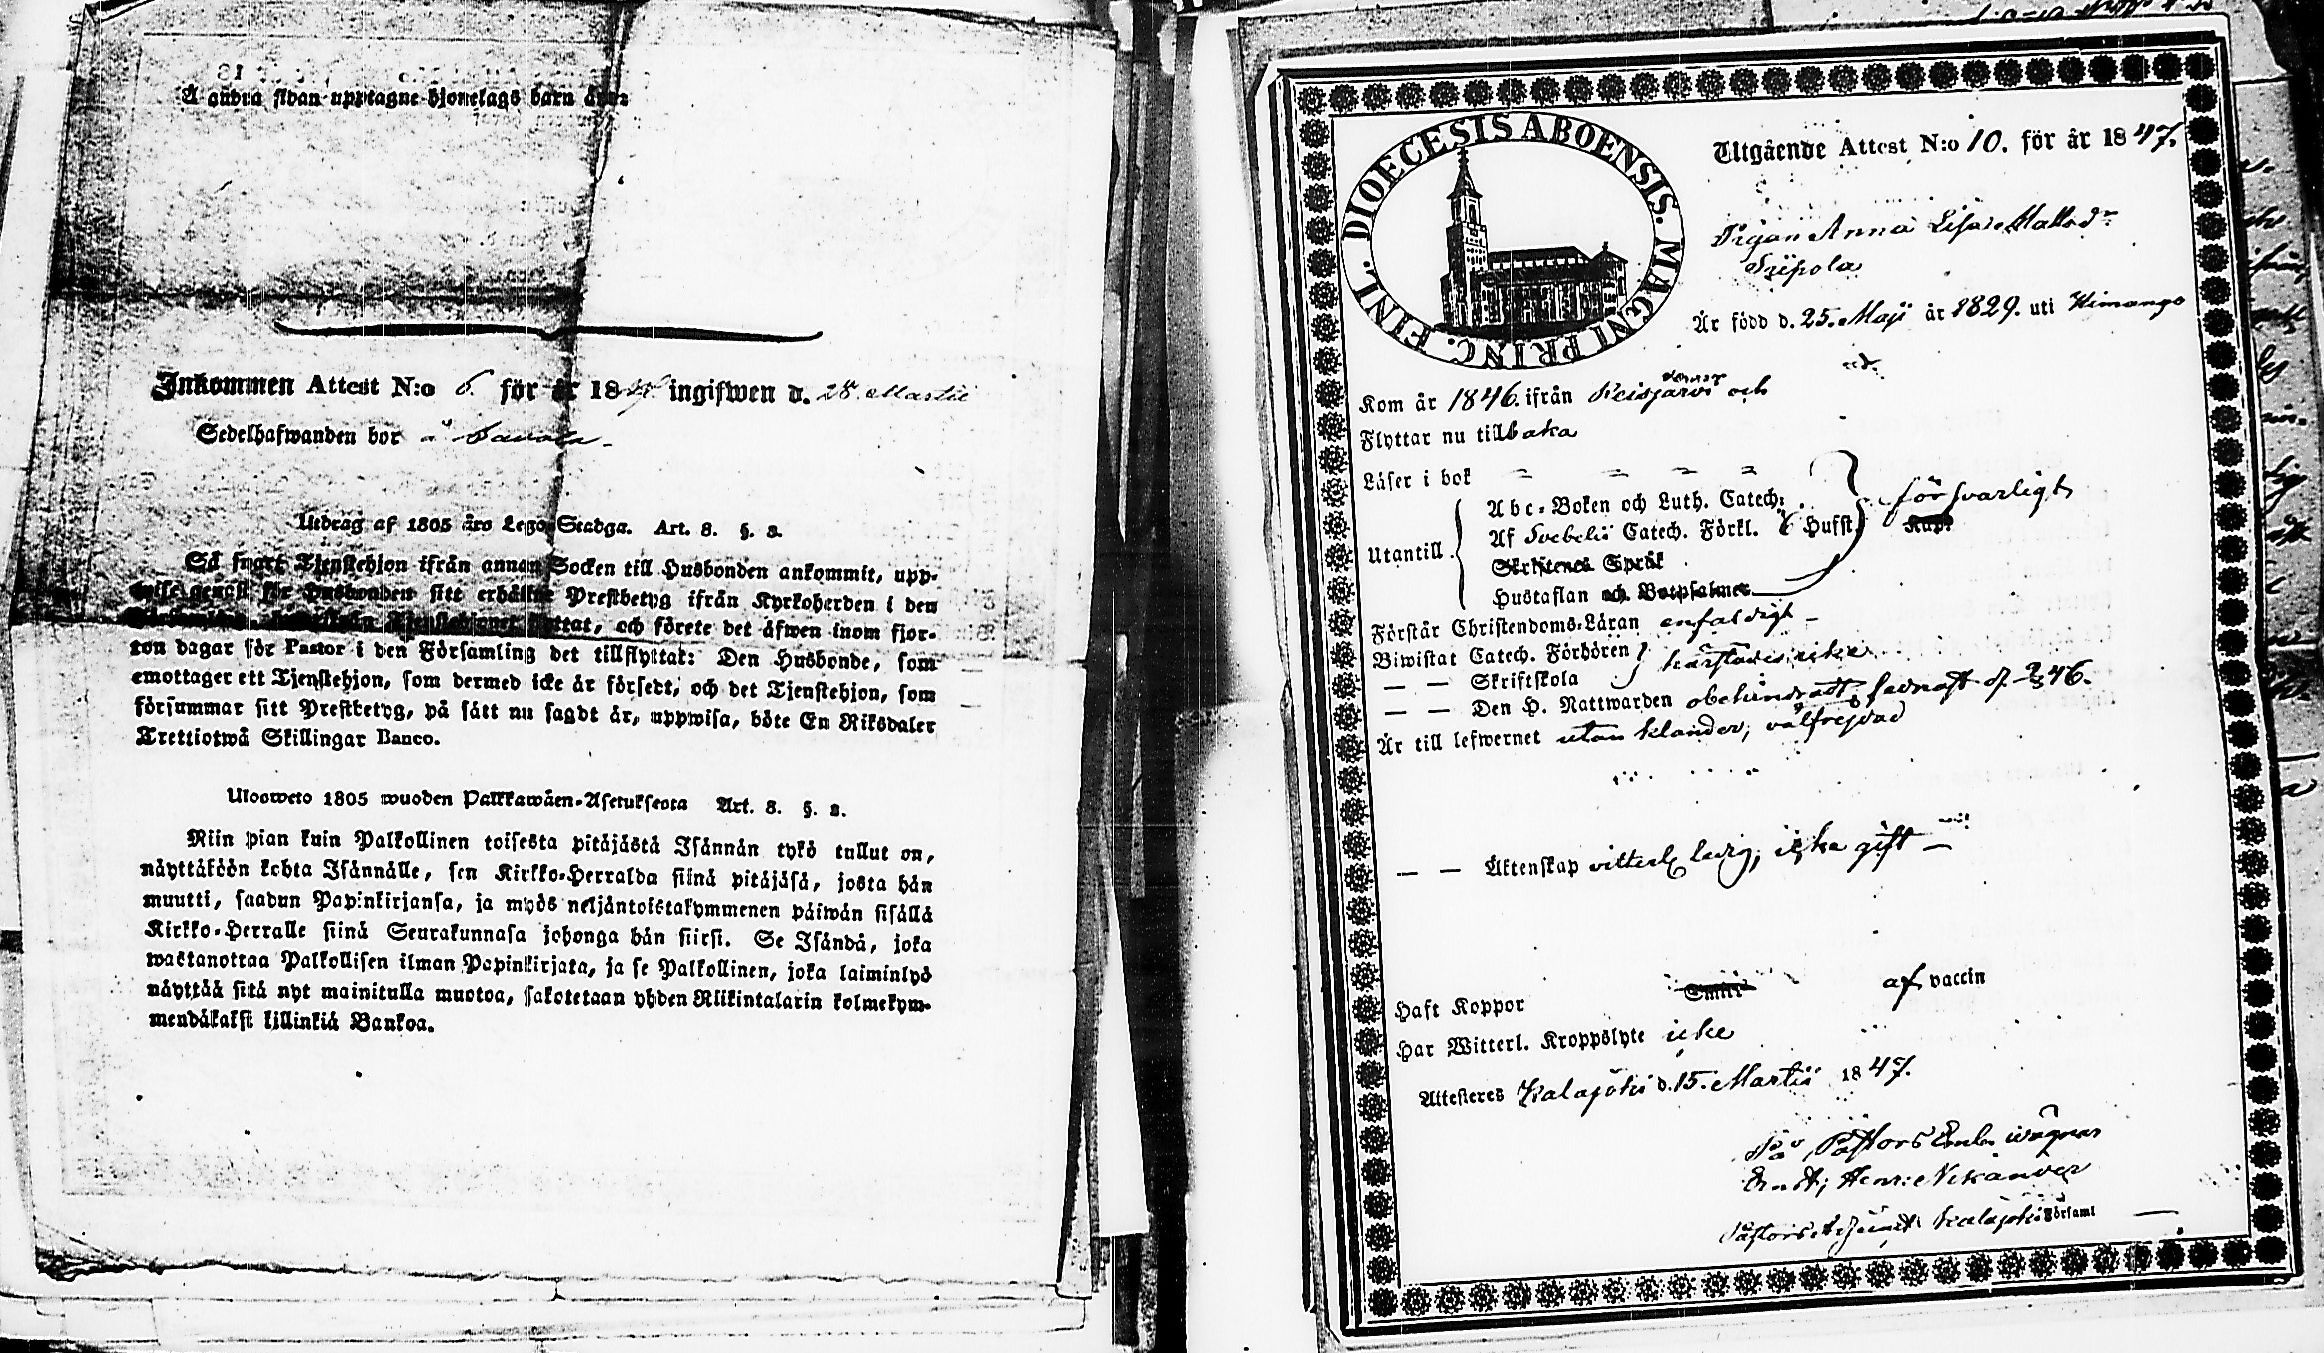 Å andra sidan upptagne hjonelags barn äro:
Inkommen Attest N:o 6. för år 1847 ingifwen d. 28. Martii
Sedelhafwanden bor å
Utdrag af 1805 års Lego-Stadga. Art. 8. §. 2.
Så snart Tjenstehjon ifrån annan Socken till Husbonden ankommit, upp-
wise genast för Husbonden sitt erhållne Prestbetyg ifrån Kyrkoherden i den
Tjenstehjonet flyttat, och förete det äfwen inom fjor-
ton dagar för Pastor i den Församling det tillflyttat: Den Husbonde, som
emottager ett Tjenstehjon, som dermed icke är försedt, och det Tjenstehjon, som
försummar sitt Prestbetyg, på sätt nu sagdt är, uppwisa, böte En Riksdaler
Trettiotwå Skillingar Banco.
Ulosweto 1805 wuoden Palkkawäen-Asetuksesta Art. 8. §. 2.
Niin pian kuin Palkollinen toisesta pitäjästä Isännän tykö tullut on,
näyttäköön kohta Isännälle, sen Kirkko-Herralda siinä pitäjäsä, josta hän
muutti, saadun Papinkirjansa, ja myös neljäntoistakymmenen päiwän sisällä
Kirkko-Herralle siinä Seurakunnasa johonga hän siirsi. Se Isändä, joka
wastanottaa Palkollisen ilman Papinkirjata, ja se Palkollinen, joka laiminlyö
näyttää sitä nyt mainitulla muotoa, sakotetaan yhden Riikintalarin kolmekym-
mendäkaksi killinkiä Bankoa.
DIOECESIS ABOENSIS. MAGNI PRINC. FINL.
Utgående Attest N:o 10. för år 1847.
Pigan Anna Lisa Mattsdr
Är född d. 25. Maji år 1829. uti Himango
Kom år 1846. ifrån Reisjärvi och
Flyttar nu tillbaka
Läser i bok
Utantill Abc-Boken och Luth. Catech: försvarligt
Af Svebelii Catech. Förkl. 6 Hufst. Kap.
Skriftenes Språk
Hustaflan och Botpsalmer
Förstår Christendoms-Läran enfaldigt
Biwistat Catech. Förhören härstädes icke
— — Skriftskola
— — Den H. Nattwarden obehindradt, sednast d.
Är till lefwernet utan klander, välfrejdad
— — Äktenskap vitterl. ledig, icke gift —
Haft Koppor Smitt af vaccin
Har Witterl. Kroppslyte icke
Attesteras Kalajoki d. 15. Martii 1847.
På Pastors Embs vägnar
Pastors Adjunct i Kalajoki Församl